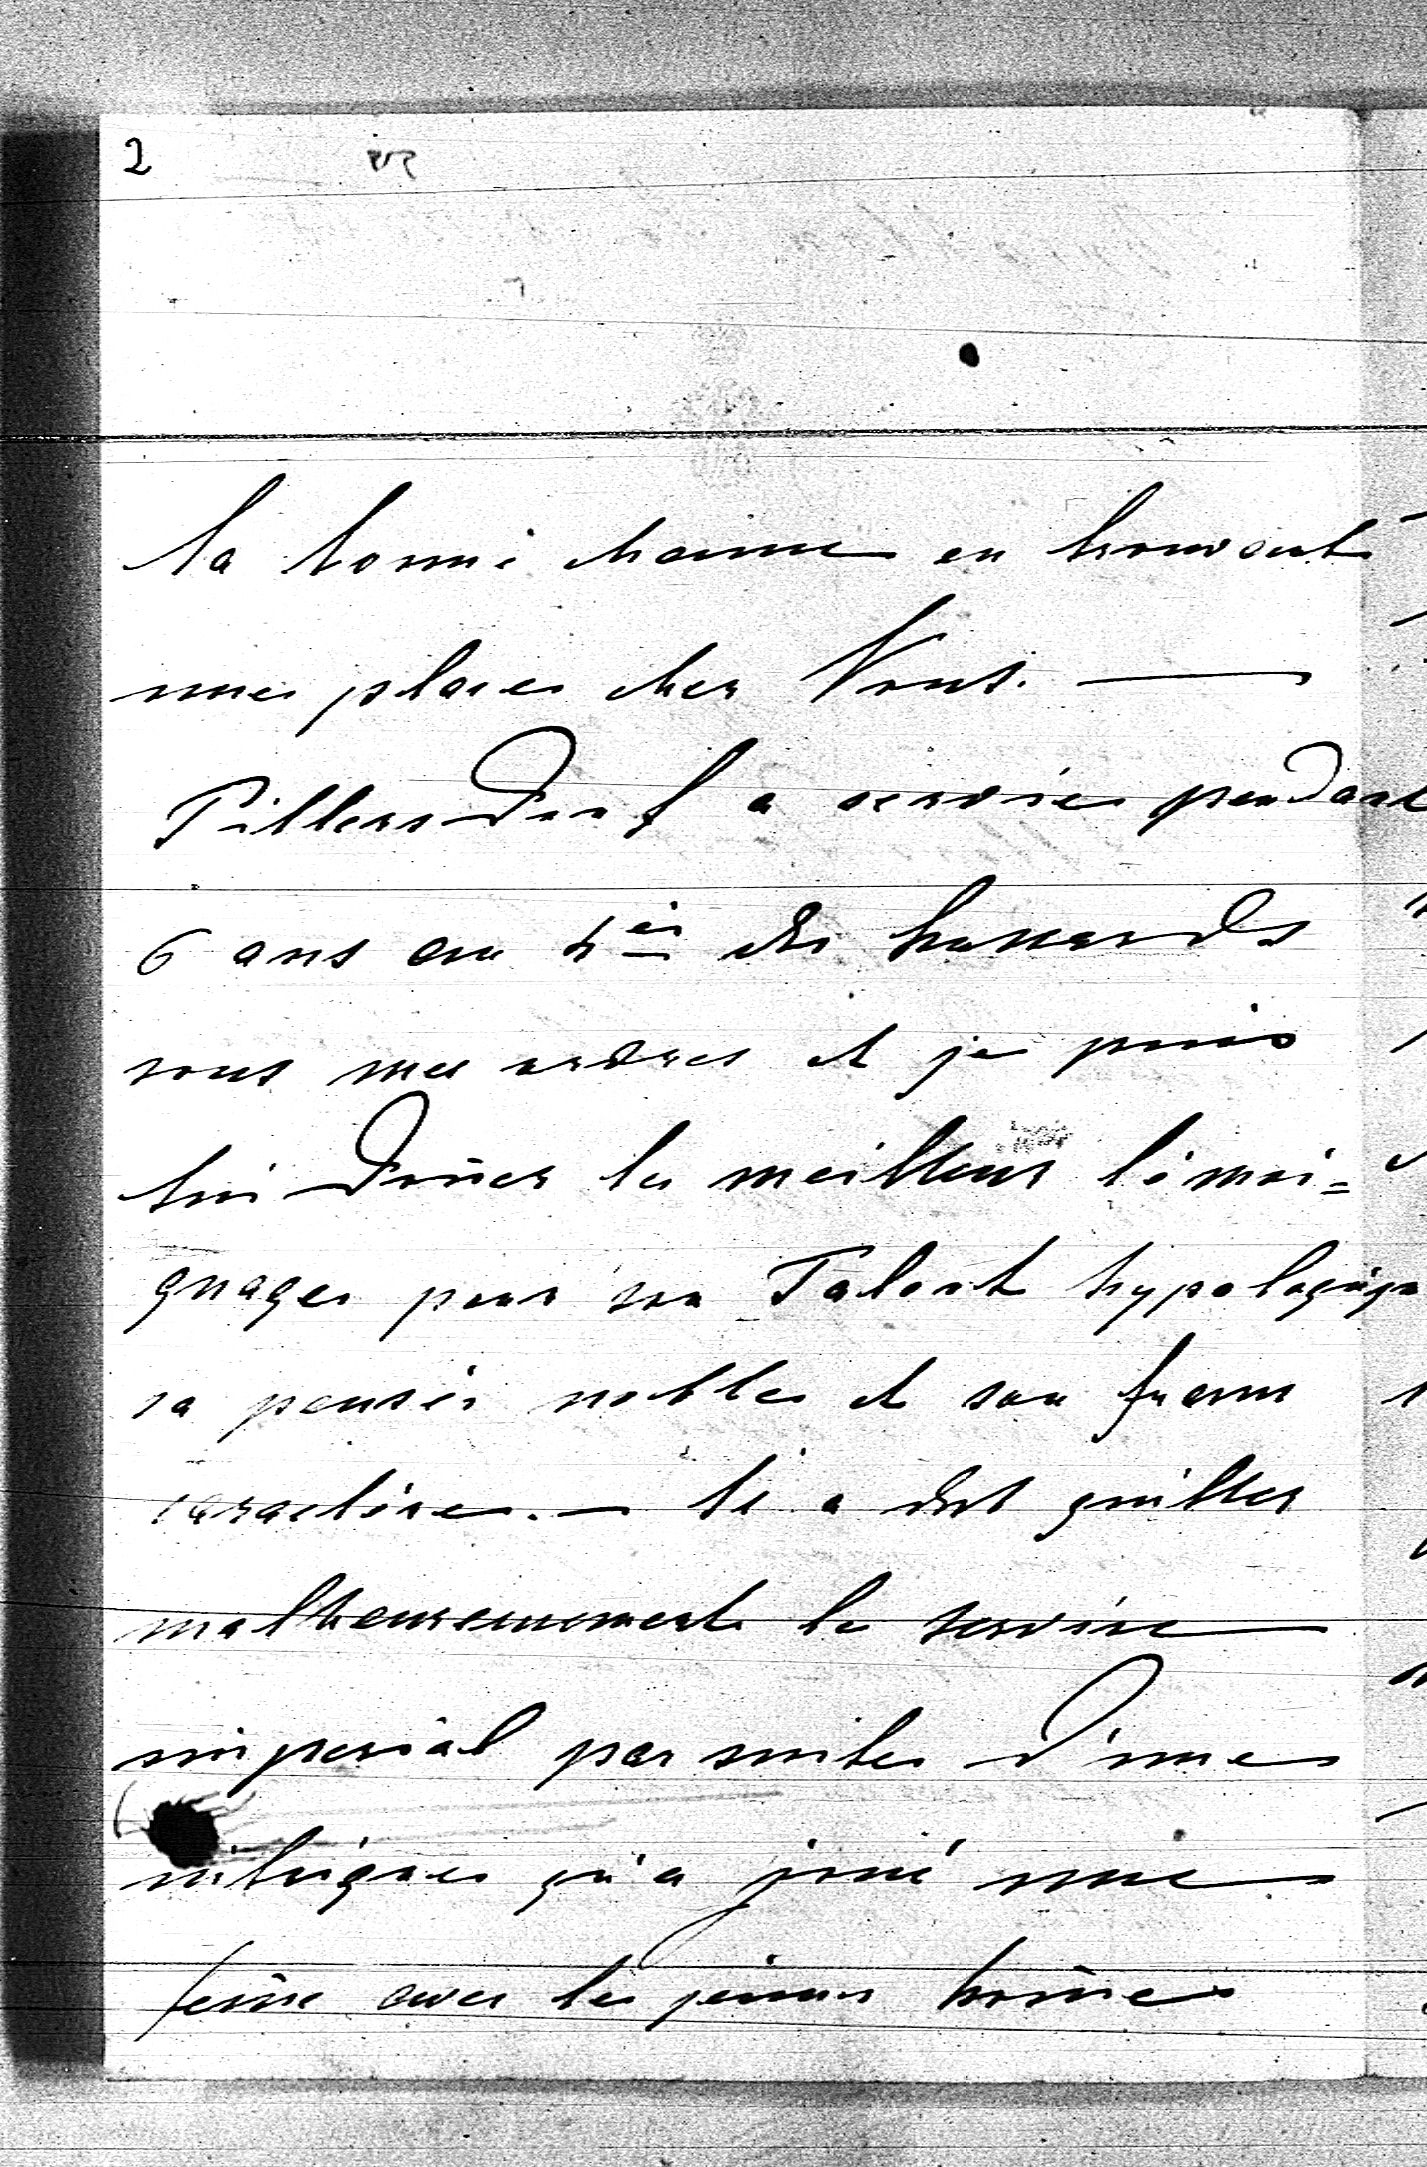 2
la bonne chance en trouvant
une place chez Vous. —
Pillersdorf a servie pendant
6 ans au 4ie de hussards
sous mes ordres et je puis
lui doñer les meilleurs témoi=
gnages pour son Talent hypologique
sa pensée noble et son franc
caractère. — Il a dut quitter
malheureusement le service
imperial par suite d'une
intrigue qu'a joué une
feme avec le jeune home